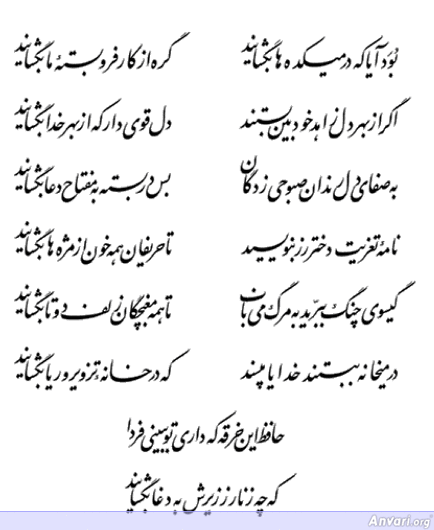 بُوَد آیا که در میکده ها بگشایند گره از کار فروبستهٔ ما بگشایند
اگر از بهر دل زاهد خودبین بستند دل قوی دار که از بهر خدا بگشایند
به صفای دل رندان صبوحی زدگان بس در بسته به مفتاح دعا بگشایند
نامهٔ تعزیت دختر رز بنویسید تا حریفان همه خون از مژه ها بگشایند
گیسوی چنگ ببرّید به مرگ می ناب تا همه مغبچگان زلف دوتا بگشایند
در میخانه ببستند خدایا مپسند که در خانهٔ تزویر و ریا بگشایند
حافظ این خرقه که داری تو ببینی فردا
که چه زنار ز زیرش به دغا بگشایند
Anvari.org